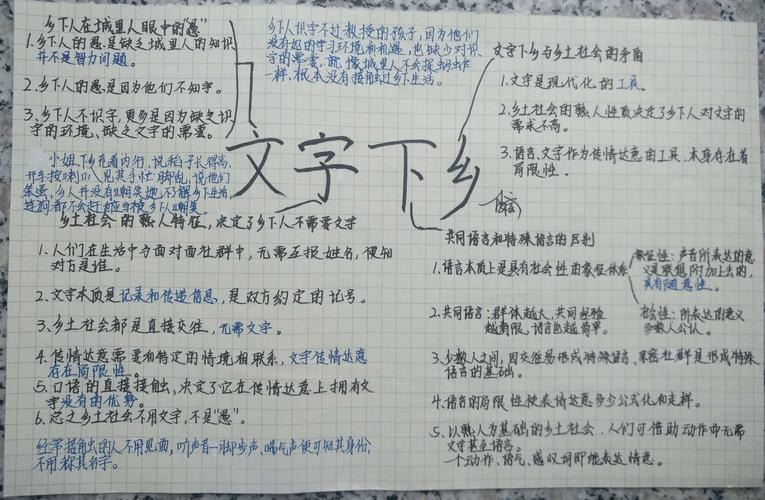 乡下人在城里人眼中的"愚"
1.乡下人的愚是缺乏城里人的知识
并不是智力问题。
2.乡下人的愚是因为他们不知字。
3.乡下人不识字,更多是因为缺乏识
字的环境、缺乏文字的需要。
小姐下乡充着内行,说稻子长得高,
乡下人识字不过教授的孩子,因为他们
没有好的学习环境和机遇,也缺少对识
字的需要,就像城里人不会捉蚂蚱
一样,根本没有接触过乡下生活。
文字下乡
文字下乡与乡土社会的矛盾
1.文字是现代化的工具。
2.乡土社会的熟人性质决定了乡下人对文字的
需求不高。
3.语言、文字作为传情达意的工具,本身存在着
局限性。
乡土社会的熟人特征,决定了乡下人不需要文字
1.人们在生活中方面对面社群中,无需互报姓名,便知
对方是谁。
2.文字本质是记录和传递信息,是双方约定的记号。
3.乡土社会都是直接交往,无需文字。
4.传情达意需要和特定的情境相联系,文字传情达意
存在局限性。
5.口语的直接接触,决定了它在传情达意上拥有文
字没有的优势。
6.总之乡土社会不用文字,不是"愚"。
经常接触的人不用见面,听声音、脚步声、喘气声便可知其身份,
不用称其名字。
共同语言和特殊语言的区别
1.语言本质上是具有社会性的象征体系
象征性:声音所表达的意
义是联想附加上去的,
具有随意性。
社会性:所表达的意义
多数人公认。
2.共同语言:群体越大,共同经验
越有限,语言也越简单。
3.少数人之间,因交往易形成特殊语言、亲密社群是形成特殊
语言的基础。
4.语言的局限性使表情达意多少公式化和走样。
5.以熟人为基础的乡土社会,人们可借助动作而无需
文字甚至语言。
一个动作、语气、感叹词即能表达情意。